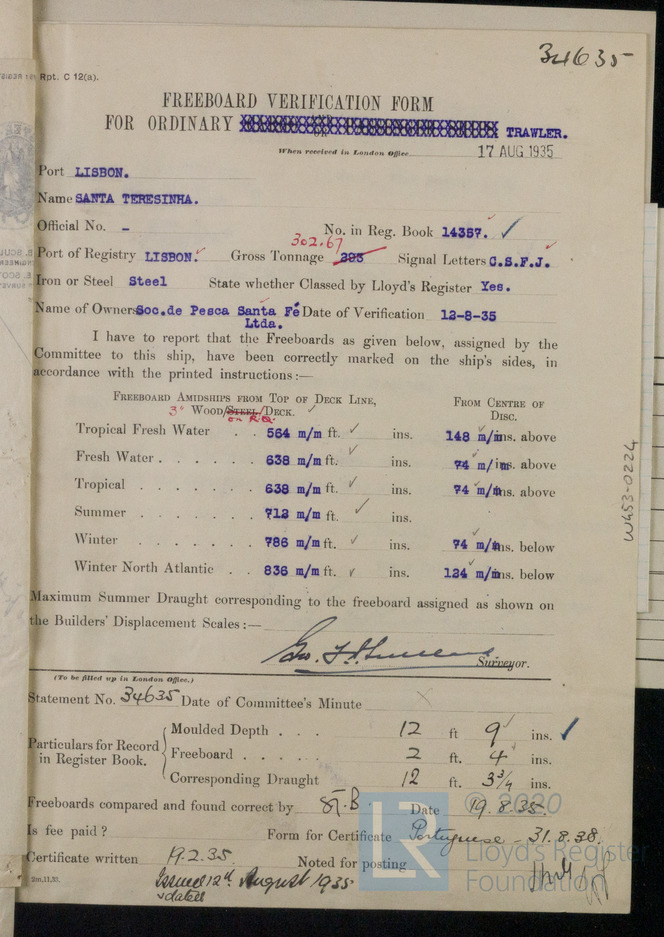 34635
Rpt. C 12(a).
FREEBOARD VERIFICATION FORM
FOR ORDINARY TRAWLER.
When received in London Office 17 AUG 1935
Port LISBON.
Name SANTA TERESINHA.
Official No. - No. in Reg. Book 14357. ✓
302.67
Port of Registry LISBON. Gross Tonnage 293 Signal Letters C.S.F.J.
Iron or Steel Steel State whether Classed by Lloyd's Register Yes.
Name of Owners Soc.de Pesca Santa Fé Date of Verification 12-8-35
Ltda.
I have to report that the Freeboards as given below, assigned by the
Committee to this ship, have been correctly marked on the ship's sides, in
accordance with the printed instructions:—
FREEBOARD AMIDSHIPS FROM TOP OF DECK LINE, FROM CENTRE OF
3" WOOD/STEEL/DECK. ✓ DISC.
on R.Q.
Tropical Fresh Water . . 564 m/m ft. ✓ ins. 148 m/m ins. above
Fresh Water . . . . . . 638 m/m ft. ✓ ins. 74 m/m ins. above
Tropical . . . . . . . 638 m/m ft. ✓ ins. 74 m/m ins. above
Summer . . . . . . . 712 m/m ft. ✓ ins.
Winter . . . . . . . 786 m/m ft. ✓ ins. 74 m/m ins. below
Winter North Atlantic . . 836 m/m ft. ✓ ins. 124 m/m ins. below
Maximum Summer Draught corresponding to the freeboard assigned as shown on
the Builders' Displacement Scales:—
Surveyor.
(To be filled up in London Office.)
Statement No. 34635 Date of Committee's Minute
Particulars for Record in Register Book.
Moulded Depth . . . 12 ft 9 ins. ✓
Freeboard . . . . . 2 ft. 4 ins.
Corresponding Draught 12 ft. 3 3/4 ins.
Freeboards compared and found correct by Date 19.8.35.
Is fee paid ? Form for Certificate Portuguese - 31.8.38.
Certificate written 19.2.35. Noted for posting
2m,11,33. Issued 12th August 1935
& dated
W453-0224
© 2020
LR
Lloyd's Register
Foundation